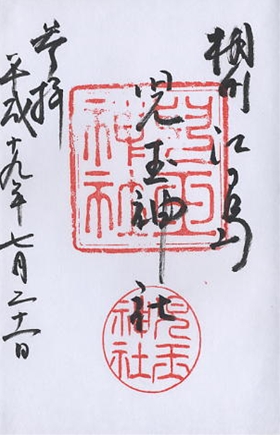 相州江の島
児玉神社
参拝
平成十九年七月二十一日
児玉
神社
児玉
神社